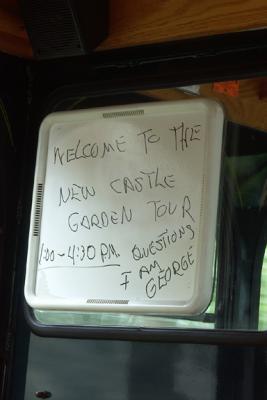 WELCOME TO THE
NEW CASTLE
GARDEN TOUR
1:00-4:30 P.M. QUESTIONS
I AM
GEORGE